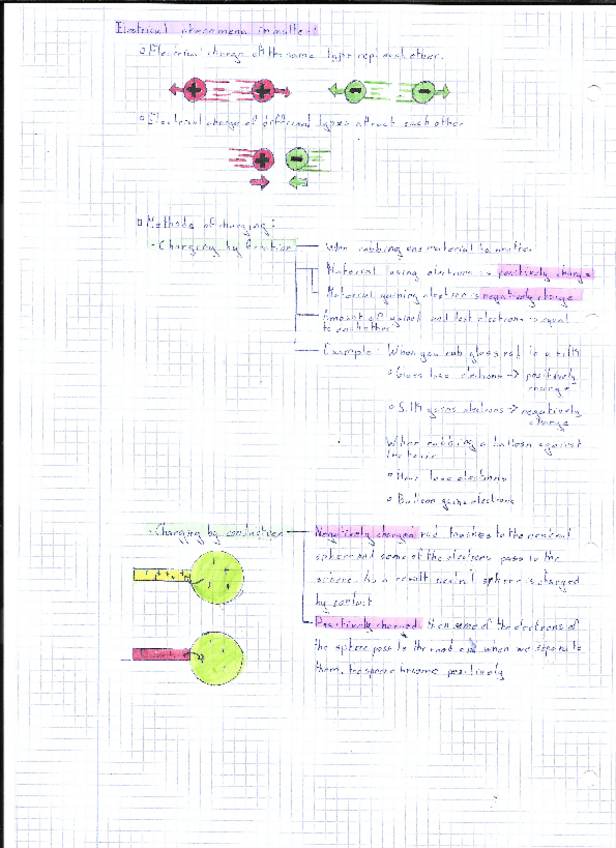 Electrical phenomena in matter:
Electrical charge of the same type repel each other.
+ + - -
Electrical charge of different types attract each other
+ -
Methods of charging:
Charging by friction
When rubbing one material to another
Material losing electrons is positively charge
Material gaining electron is negatively charge
Amount of gained and lost electrons is equal
to each other
Example: When you rub glass rod to a silk
Glass lose electrons -> positively
charge
Silk gains electrons -> negatively
charge
When rubbing a balloon against
the hair
Hair lose electrons
Balloon gains electrons
Charging by conduction
Negatively charged rod touches to the neutral
sphere and some of the electrons pass to the
sphere. As a result neutral sphere is charged
by contact
Positively charged then some of the electrons of
the sphere pass to the rood and when we separate
them, the sphere become positively